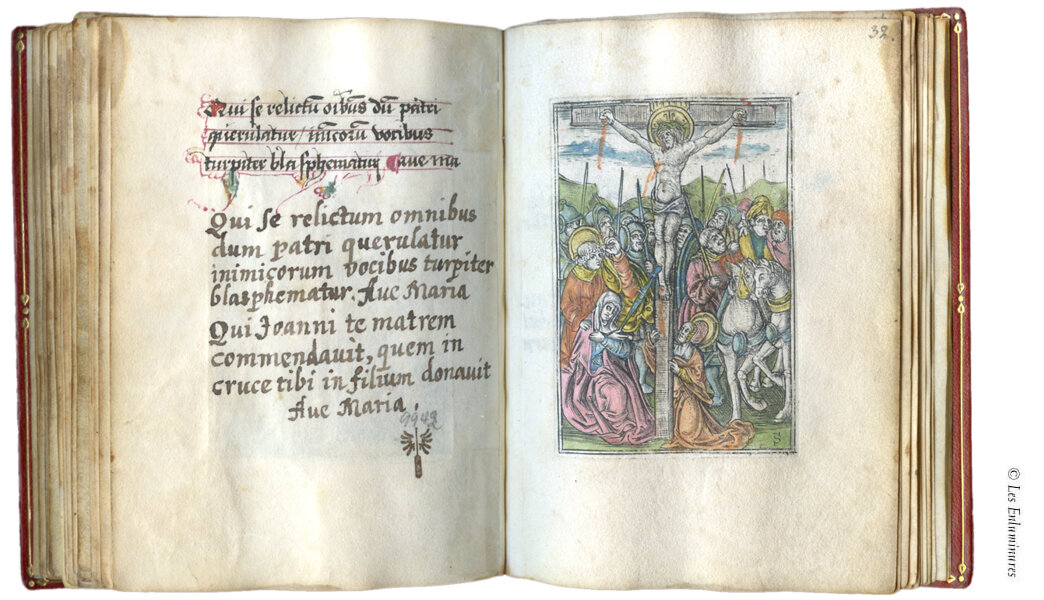 Qui se relictū oībus dū patri
querulatur / inīicorū vocibus
turpiter blasphematur Aue ma
Qui se relictum omnibus
dum patri querulatur
inimicorum vocibus turpiter
blasphematur. Aue Maria
Qui Joanni te matrem
commendauit, quem in
cruce tibi in filium donauit
Aue Maria.
9942
32.
S
© Les Enluminures